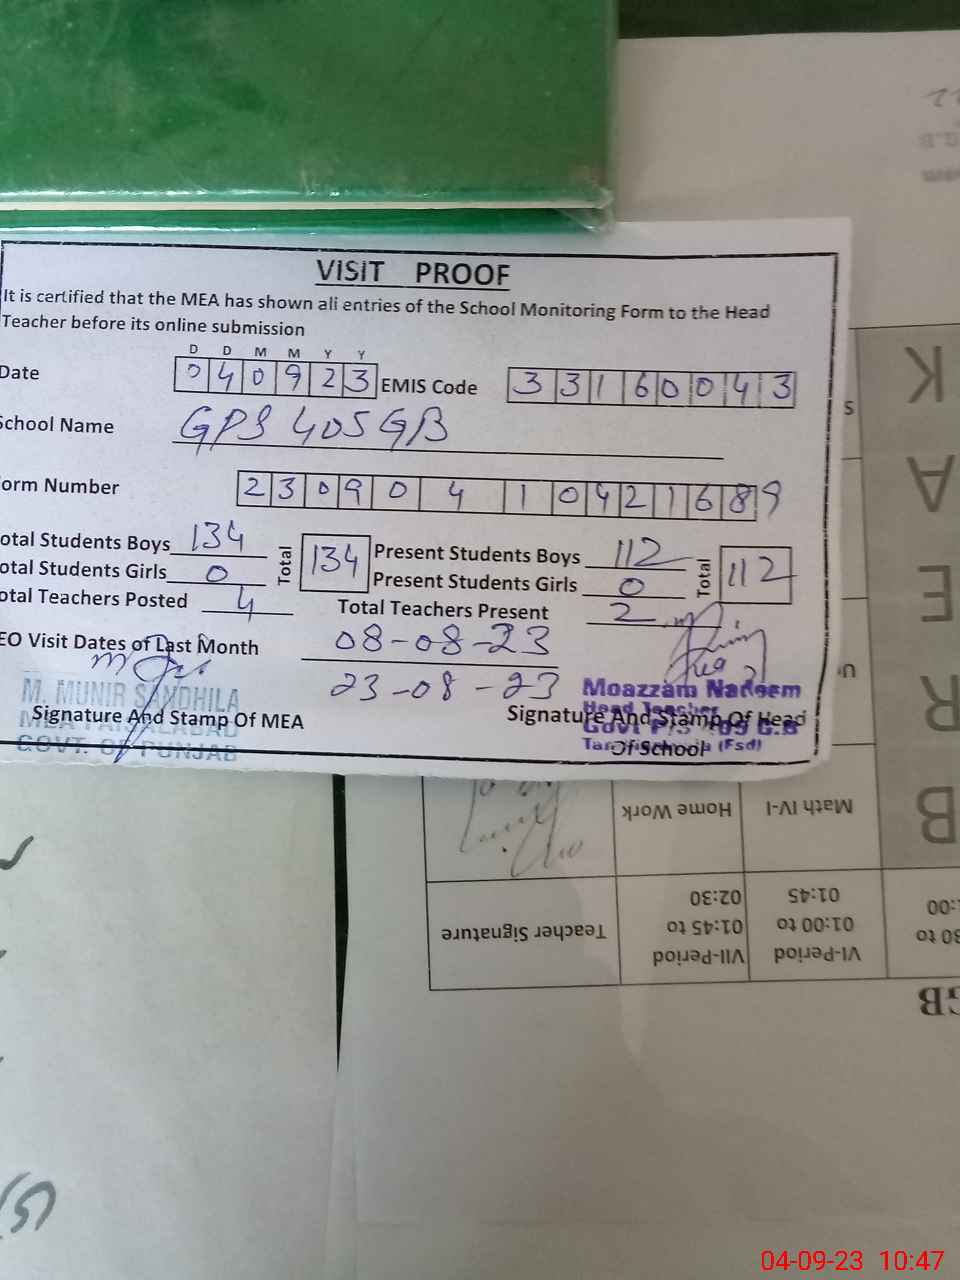 VISIT PROOF
It is certified that the MEA has shown all entries of the School Monitoring Form to the Head
Teacher before its online submission
D D M M Y Y
Date 0 4 0 9 2 3 EMIS Code 3 3 1 6 0 0 4 3
School Name GPS 405 GB
orm Number 2 3 0 9 0 4 1 0 4 2 1 6 8 9
otal Students Boys 134 Total 134 Present Students Boys 112 Total 112
otal Students Girls 0 Present Students Girls 0
otal Teachers Posted 4 Total Teachers Present 2
EO Visit Dates of Last Month 08-08-23
23-08-23
M. MUNIR SANDHILA
Signature And Stamp Of MEA
GOVT. OF PUNJAB
Moazzam Nadeem
Head Teacher
Signature And Stamp Of Head
Of School
(Fsd)
K
A
E
R
B
Math IV-I
Home Work
Teacher Signature
VII-Period
01:45 to
02:30
VI-Period
01:00 to
01:45
GB
04-09-23 10:47